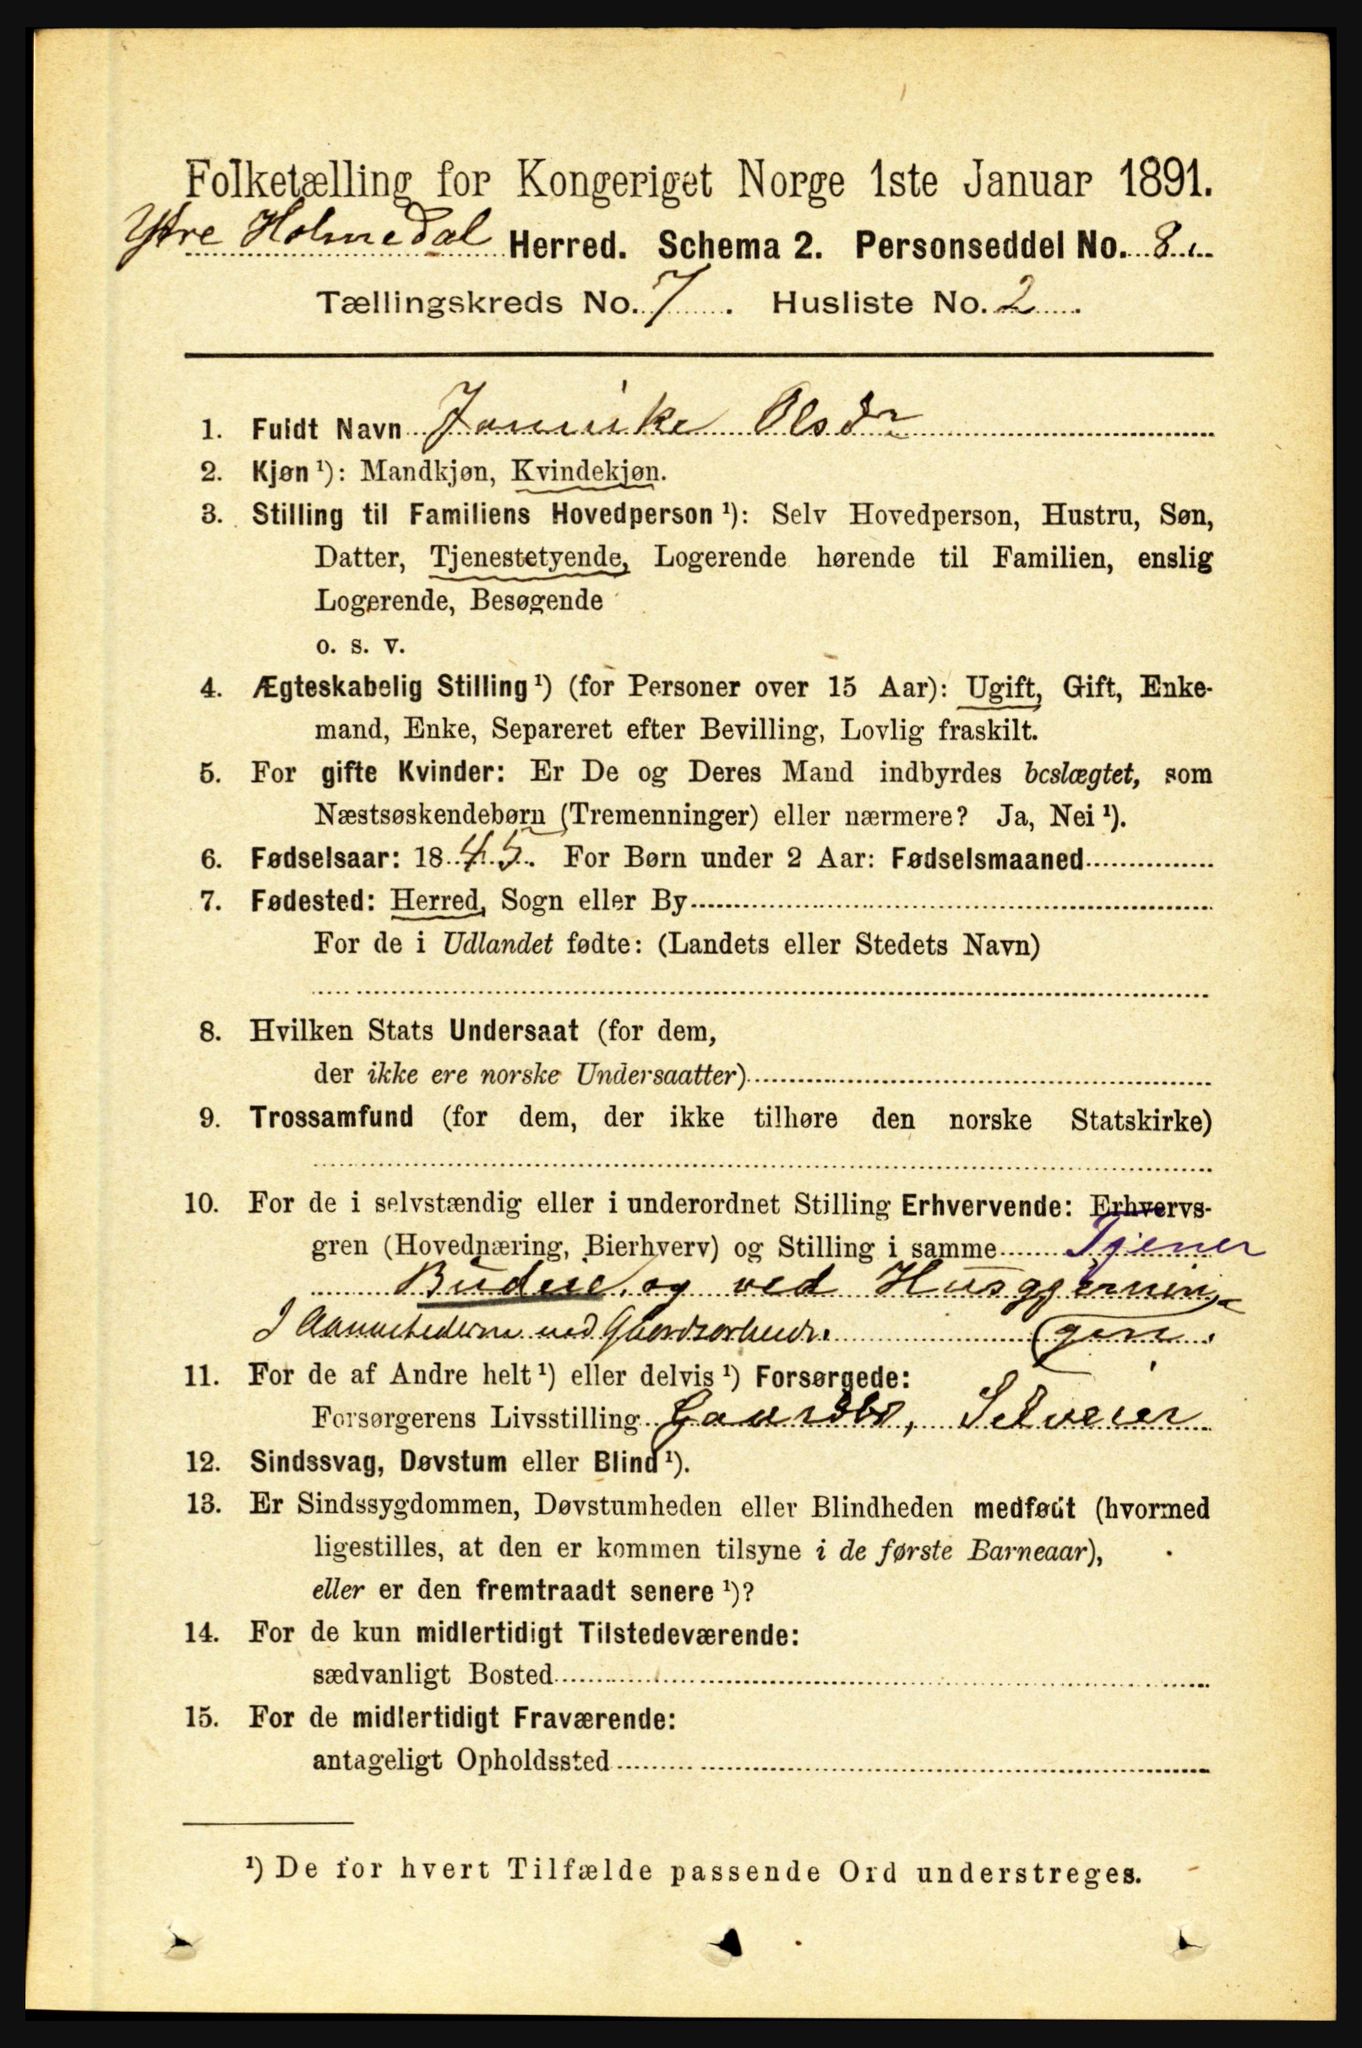 Folketælling for Kongeriget Norge 1ste Januar 1891.
Ytre Holmedal Herred. Schema 2. Personseddel No. 8.
Tællingskreds No. 7. Husliste No. 2.
1. Fuldt Navn Jannike Olsdr
2. Kjøn ¹): Mandkjøn, Kvindekjøn.
3. Stilling til Familiens Hovedperson ¹): Selv Hovedperson, Hustru, Søn,
Datter, Tjenestetyende, Logerende hørende til Familien, enslig
Logerende, Besøgende
o. s. v.
4. Ægteskabelig Stilling ¹) (for Personer over 15 Aar): Ugift, Gift, Enke-
mand, Enke, Separeret efter Bevilling, Lovlig fraskilt.
5. For gifte Kvinder: Er De og Deres Mand indbyrdes beslægtet, som
Næstsøskendebørn (Tremenninger) eller nærmere? Ja, Nei ¹).
6. Fødselsaar: 1845. For Børn under 2 Aar: Fødselsmaaned
7. Fødested: Herred, Sogn eller By
For de i Udlandet fødte: (Landets eller Stedets Navn)
8. Hvilken Stats Undersaat (for dem,
der ikke ere norske Undersaatter)
9. Trossamfund (for dem, der ikke tilhøre den norske Statskirke)
10. For de i selvstændig eller i underordnet Stilling Erhvervende: Erhvervs-
gren (Hovednæring, Bierhverv) og Stilling i samme Tjener
Budeie, og ved Husgjernin-
I Aannetiderne ved Gaardsarbeide. gen.
11. For de af Andre helt ¹) eller delvis ¹) Forsørgede:
Forsørgerens Livsstilling Gaardbr, Selveier
12. Sindssvag, Døvstum eller Blind ¹).
13. Er Sindssygdommen, Døvstumheden eller Blindheden medfødt (hvormed
ligestilles, at den er kommen tilsyne i de første Barneaar),
eller er den fremtraadt senere ¹)?
14. For de kun midlertidigt Tilstedeværende:
sædvanligt Bosted
15. For de midlertidigt Fraværende:
antageligt Opholdssted
¹) De for hvert Tilfælde passende Ord understreges.